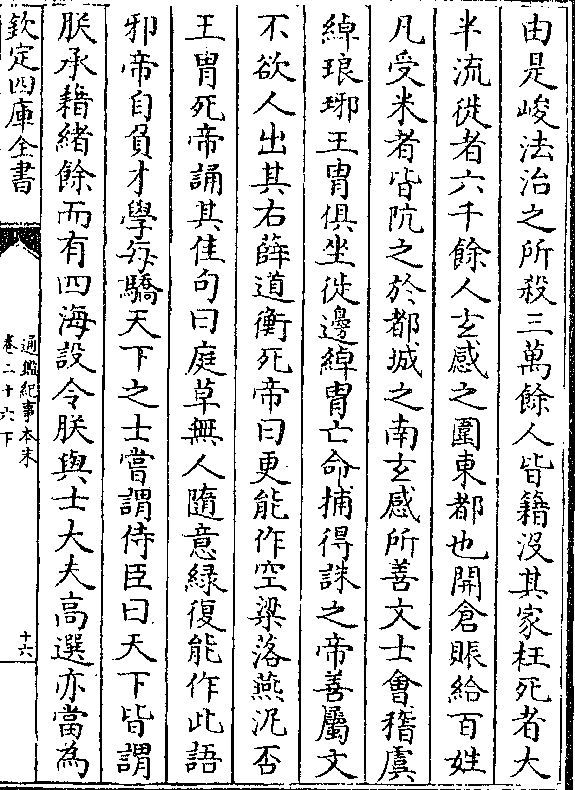 由是峻法治之所殺三萬餘人皆籍没其家枉死者大
半流徙者六千餘人玄感之圍東都也開倉賑給百姓
凡受米者皆阬之於都城之南玄感所善文士會稽虞
綽琅琊王胄俱坐徙邊綽胄亡命捕得誅之帝善屬文
不欲人出其右薛道衡死帝曰更能作空梁落燕泥否
王胄死帝誦其佳句曰庭草無人隨意緑復能作此語
邪帝自負才學每驕天下之士嘗謂侍臣曰天下皆謂
朕承藉緒餘而有四海設令朕與士大夫高選亦當為
欽定四庫全書
通鑑紀事本末
卷二十六下
十六